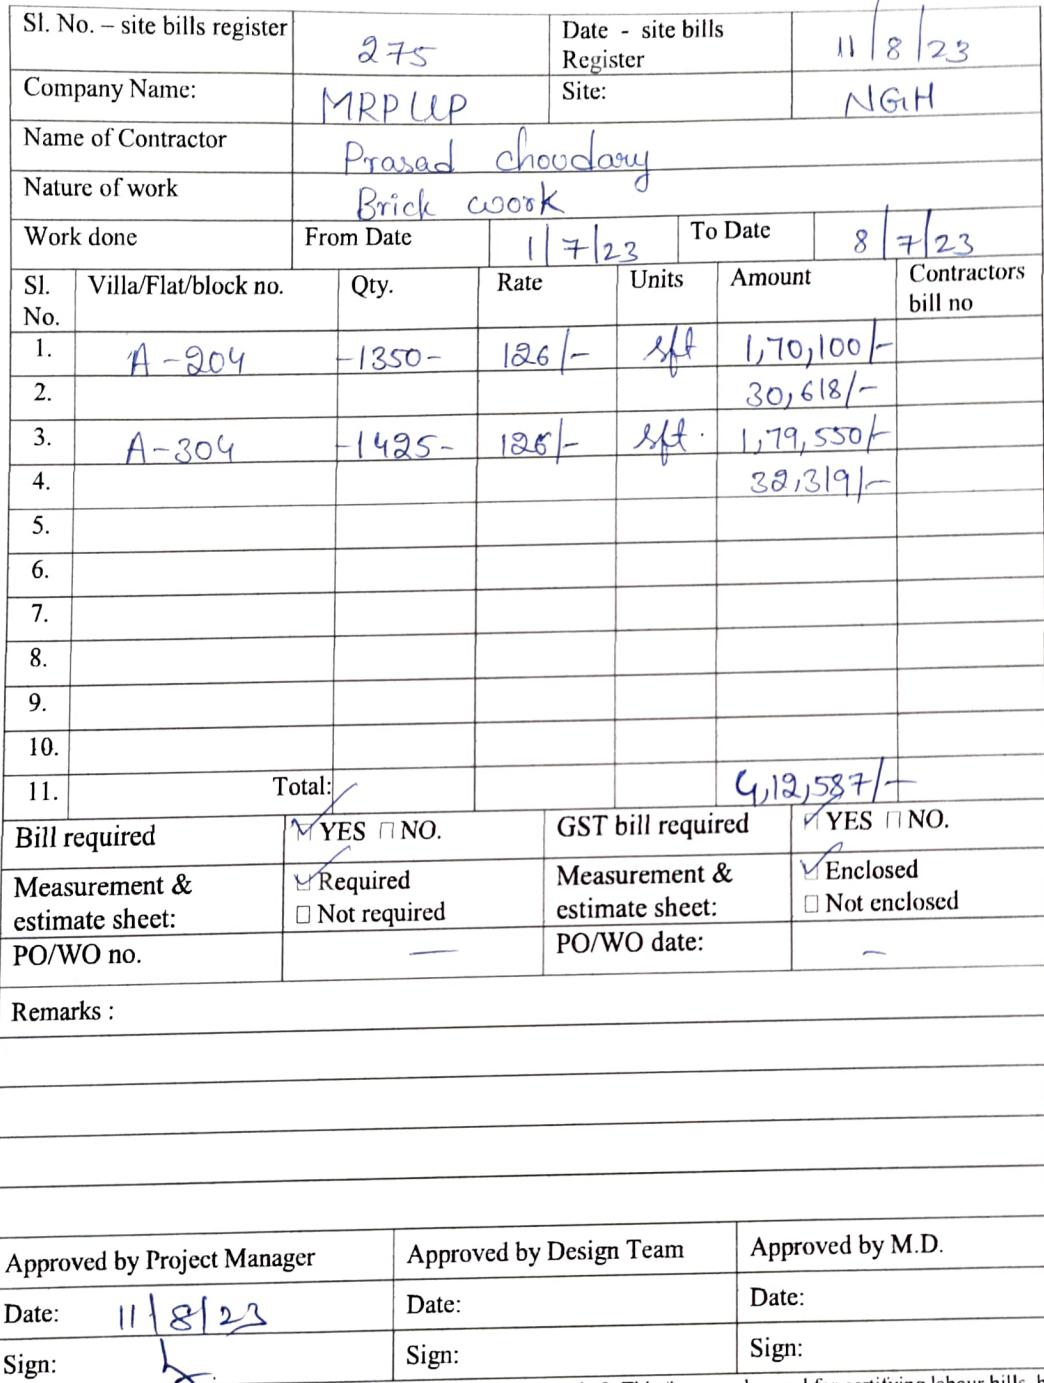 Sl. No. – site bills register 275 Date - site bills Register 11/8/23
Company Name: MRPLLP Site: NGH
Name of Contractor Prasad choudary
Nature of work Brick work
Work done From Date 1/7/23 To Date 8/7/23
Sl. No. Villa/Flat/block no. Qty. Rate Units Amount Contractors bill no
1. A-204 -1350- 126/- sft 1,70,100/-
2. 30,618/-
3. A-304 -1425- 126/- sft. 1,79,550/-
4. 32,319/-
5.
6.
7.
8.
9.
10.
11. Total: 4,12,587/-
Bill required YES NO. GST bill required YES NO.
Measurement & estimate sheet: Required Measurement & estimate sheet: Enclosed
Not required Not enclosed
PO/WO no. — PO/WO date: —
Remarks :
Approved by Project Manager Approved by Design Team Approved by M.D.
Date: 11/8/23 Date: Date:
Sign: Sign: Sign: